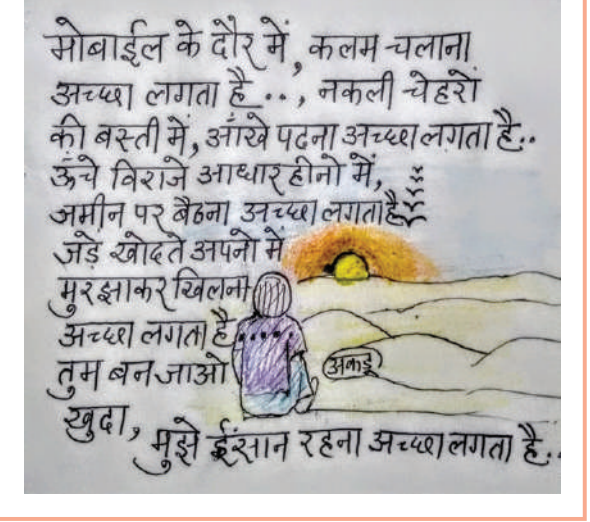 मोबाईल के दौर में, कलम चलाना
अच्छा लगता है..., नकली चेहरों
की बस्ती में, आँखे पढना अच्छा लगता है..
ऊँचे विराजे आधारहीनो में,
जमीन पर बैठना अच्छा लगता है
जड़े खोदते अपनो में
मुरझाकर खिलना
अच्छा लगता है
तुम बन जाओ
खुदा,
मुझे ईंसान रहना अच्छा लगता है..